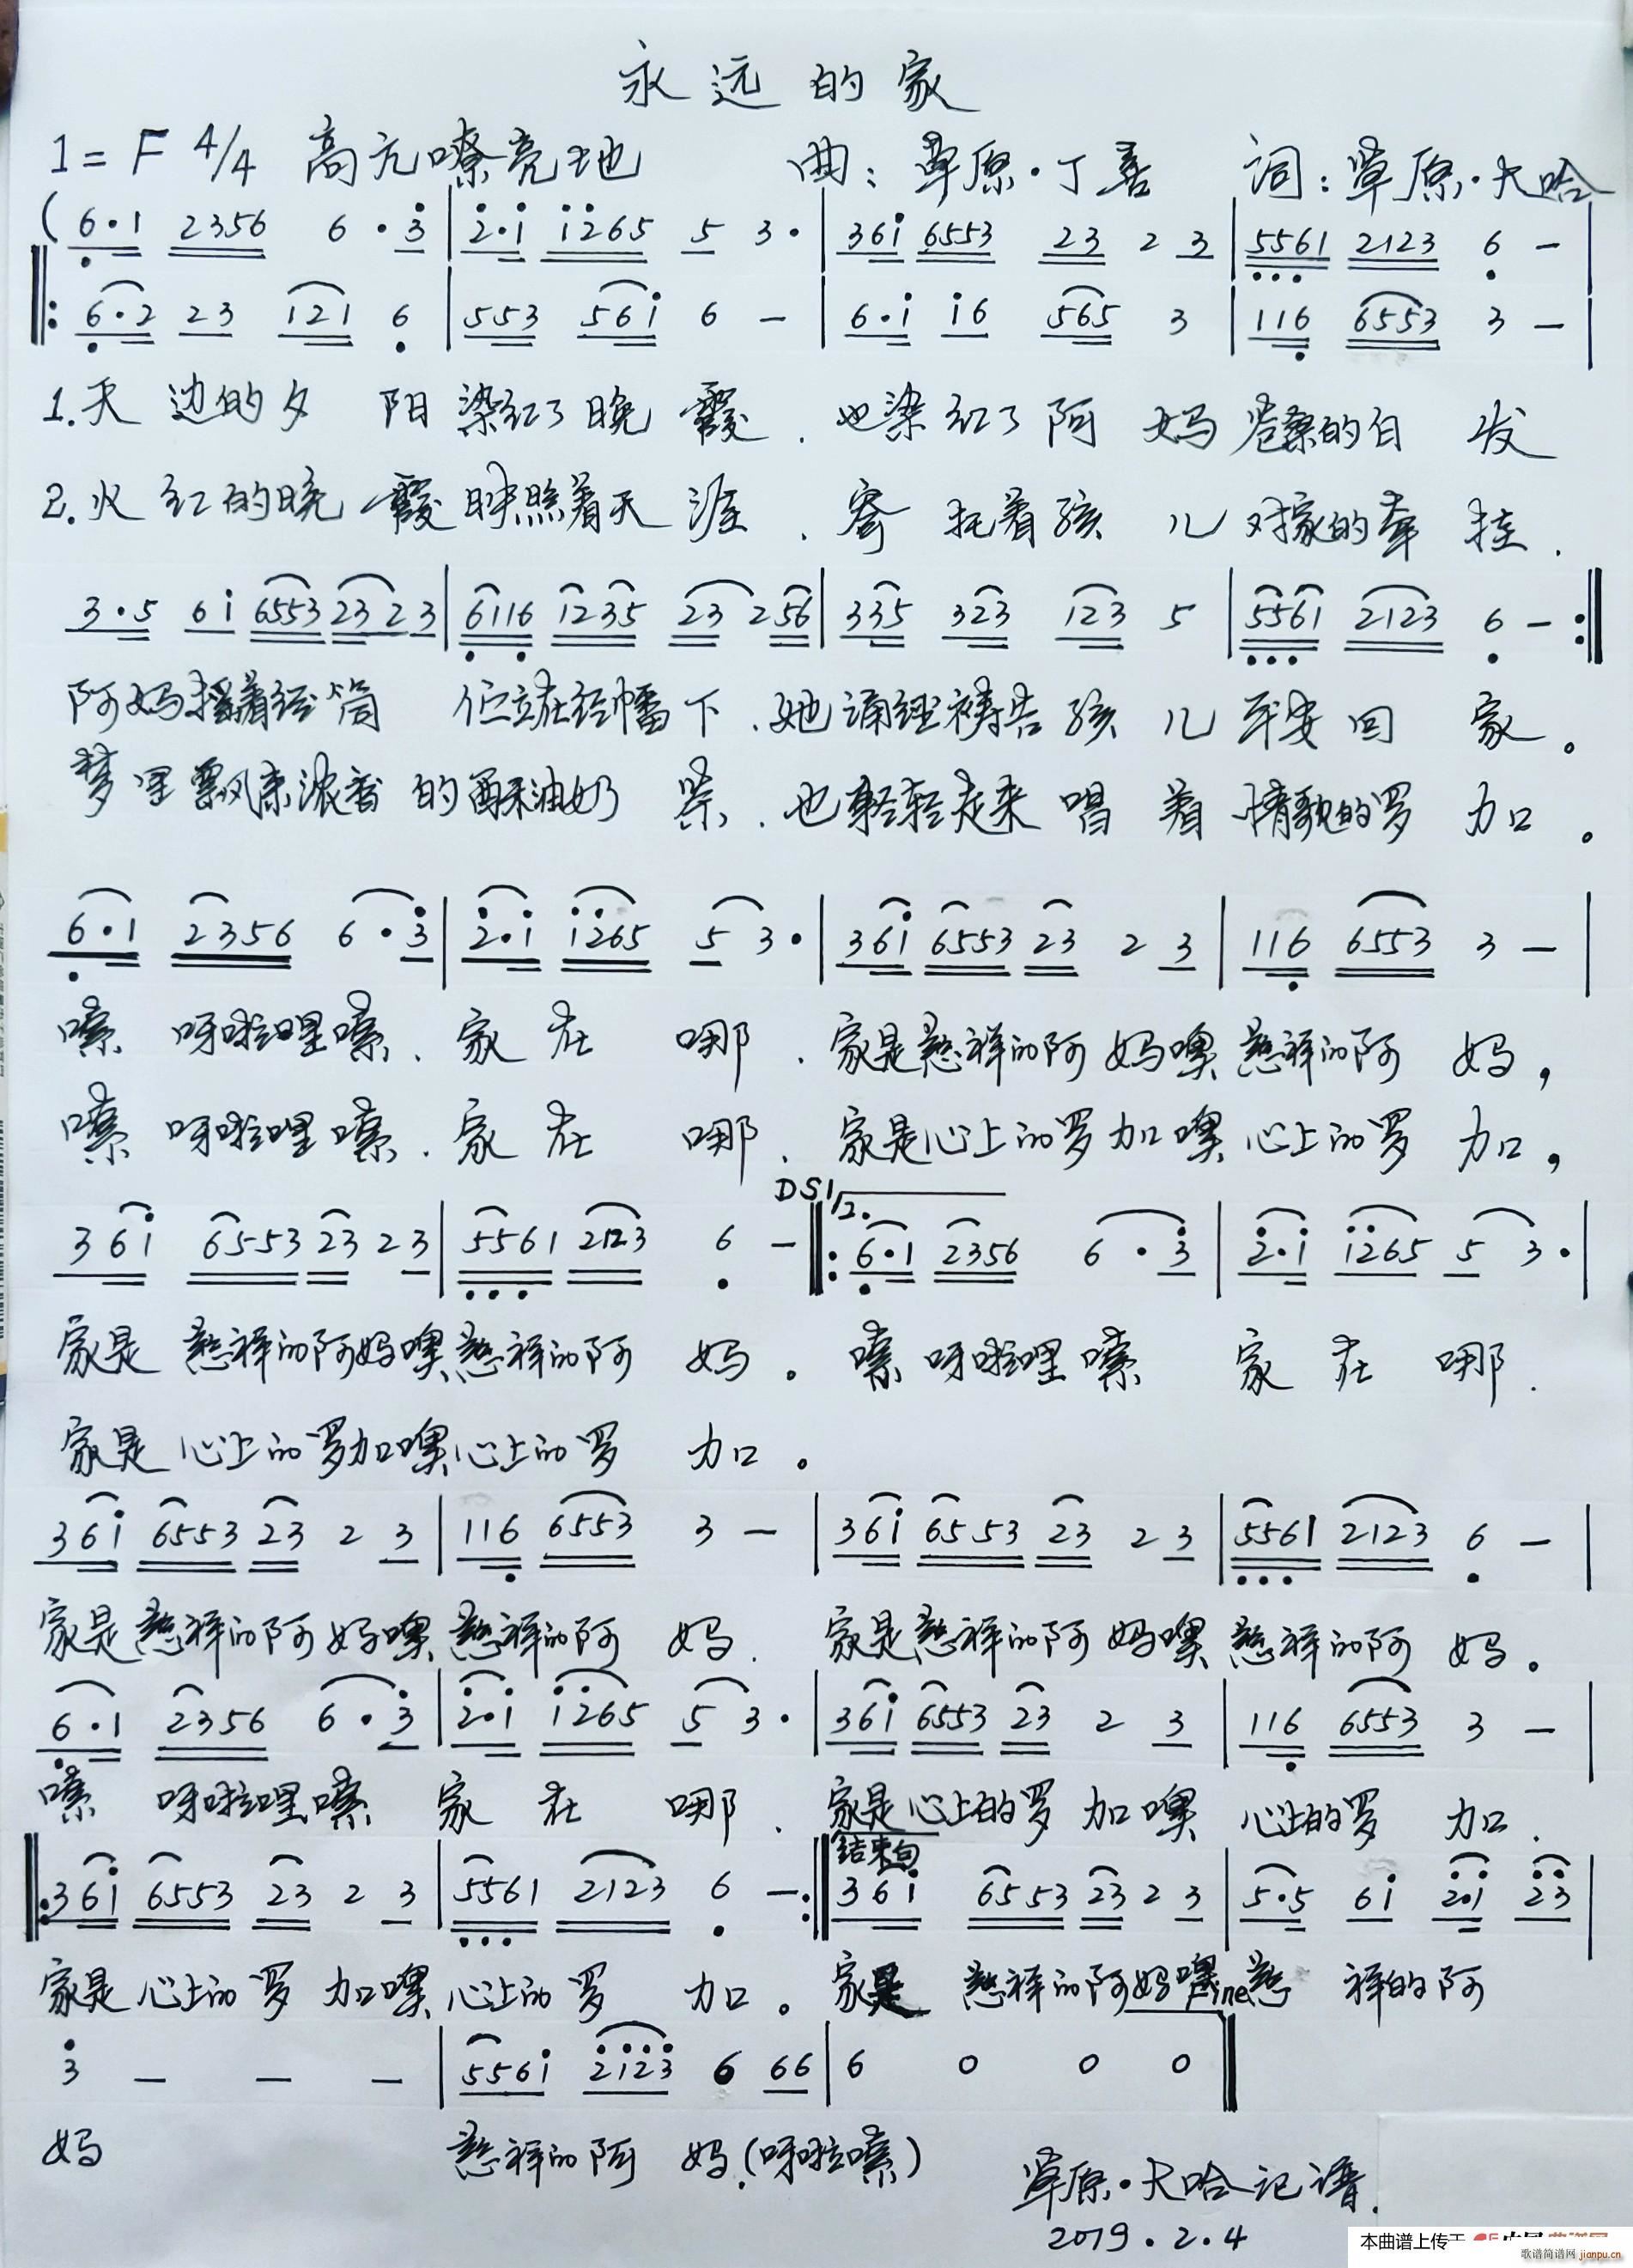 永远的家
1=F 4/4 高亢嘹亮地 曲:草原·丁喜 词:草原·大哈
(6·1 2356 6·3 | 2·i i265 5 3· | 36i 6553 23 2 3 | 5561 2123 6 -
6·2 23 121 6 | 553 561 6 - | 6·i i6 565 3 | 116 6553 3 - |
1.天边的夕阳染红了晚霞.也染红了阿妈苍桑的白发
2.火红的晚霞映照着天涯.寄托着孩儿对家的牵挂.
3·5 6i 6553 23 2 3 | 6116 1235 23 2 56 | 335 323 123 5 | 5561 2123 6 - :||
阿妈摇着经筒 伫立在经幡下.她诵经祷告孩儿平安回家。
梦里飘来浓香的酥油奶茶.也轻轻走来唱着情歌的罗加。
6·1 2356 6·3 | 2·i i265 5 3· | 36i 6553 23 2 3 | 116 6553 3 - |
嗦呀啦哩嗦.家在哪.家是慈祥的阿妈噢慈祥的阿妈,
嗦呀啦哩嗦.家在哪.家是心上的罗加噢心上的罗加,
DS1 2.
36i 6553 23 2 3 | 5561 2123 6 - ||: 6·1 2356 6·3 | 2·i i265 5 3· |
家是慈祥的阿妈噢慈祥的阿妈。嗦呀啦哩嗦 家在哪.
家是心上的罗加噢心上的罗加。
36i 6553 23 2 3 | 116 6553 3 - | 36i 6553 23 2 3 | 5561 2123 6 - |
家是慈祥的阿妈噢慈祥的阿妈.家是慈祥的阿妈噢慈祥的阿妈。
6·1 2356 6·3 | 2·i i265 5 3· | 36i 6553 23 2 3 | 116 6553 3 - |
嗦呀啦哩嗦 家在哪.家是心上的罗加噢心上的罗加.
结束句
||: 36i 6553 23 2 3 | 5561 2123 6 - :|| 36i 6553 23 2 3 | 5·5 6i 2·i 23 |
家是心上的罗加噢心上的罗加。家是慈祥的阿妈噢慈祥的阿
Fine
3 - - - | 556i 2123 6 66 | 6 0 0 0 ||
妈 慈祥的阿妈.(呀啦嗦)
草原·大哈记谱.
2019.2.4
本曲谱上传于
歌谱简谱网 jianpu.cn